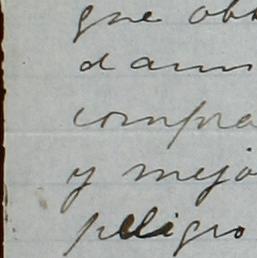 que obt
dam
compra
y mejo
peligro